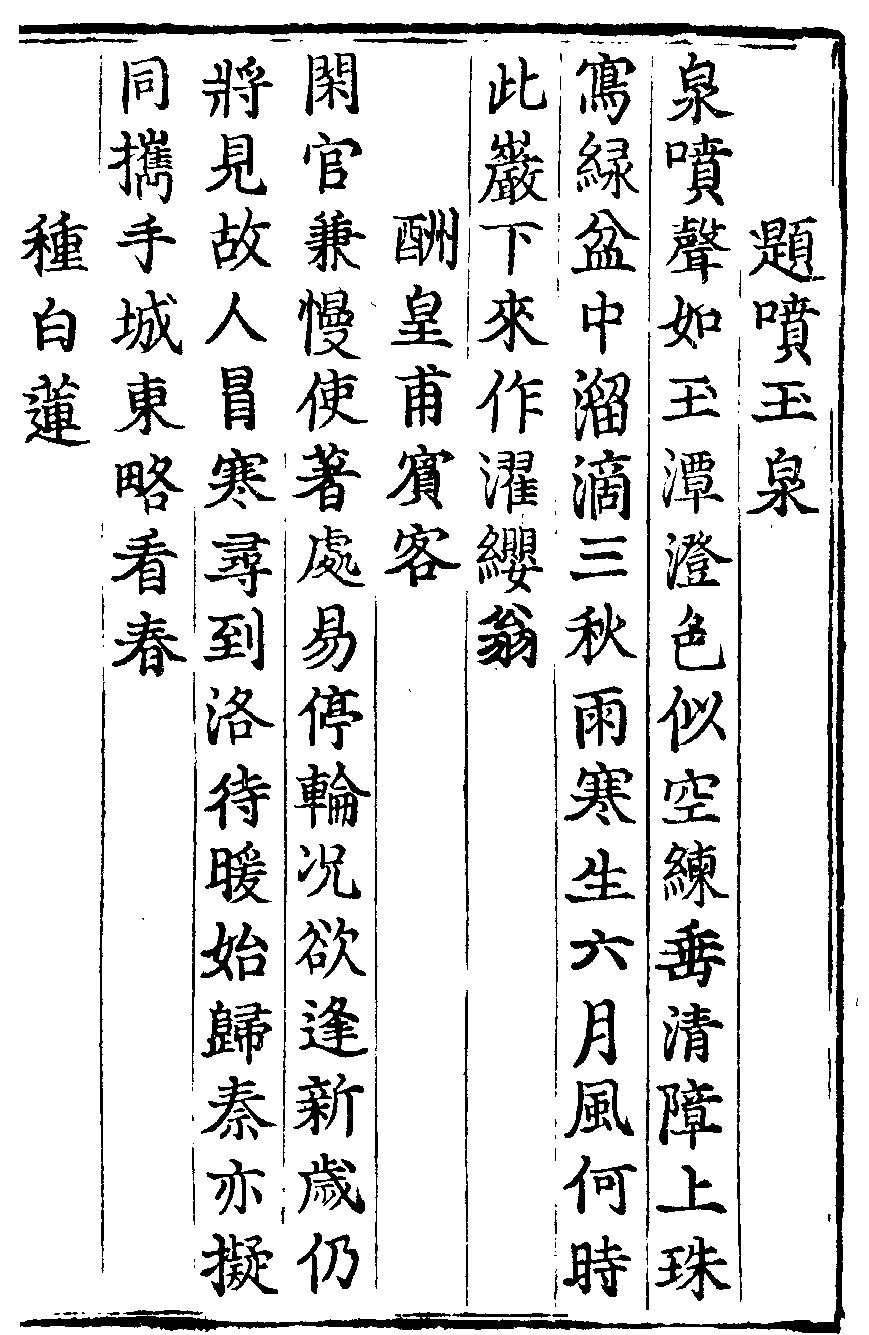 題噴玉泉
泉噴聲如玉潭澄色似空練垂清障上珠
寫綠盆中溜滴三秋雨寒生六月風何時
此巖下來作濯纓翁
酬皇甫賓客
閑官兼慢使著處易停輪况欲逢新歲仍
將見故人冒寒尋到洛待暖始歸秦亦擬
同攜手城東略看春
種白蓮